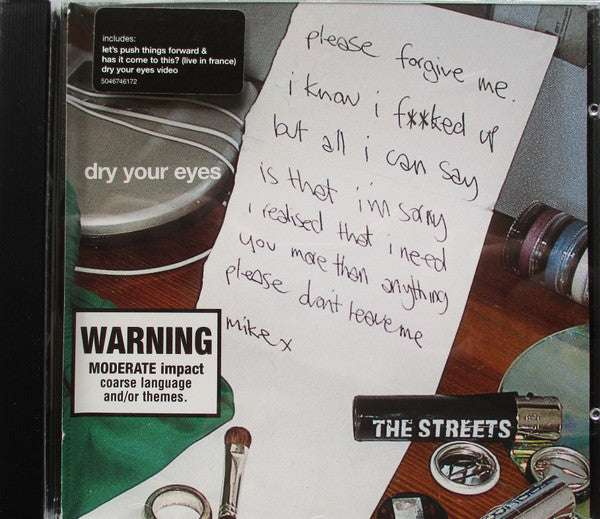 includes:
let's push things forward &
has it come to this? (live in france)
dry your eyes video
5046746172
dry your eyes
please forgive me.
i know i f**ked up
but all i can say
is that i'm sorry
i realised that i need
you more than anything
please don't leave me
mike x
WARNING
MODERATE impact
coarse language
and/or themes.
THE STREETS